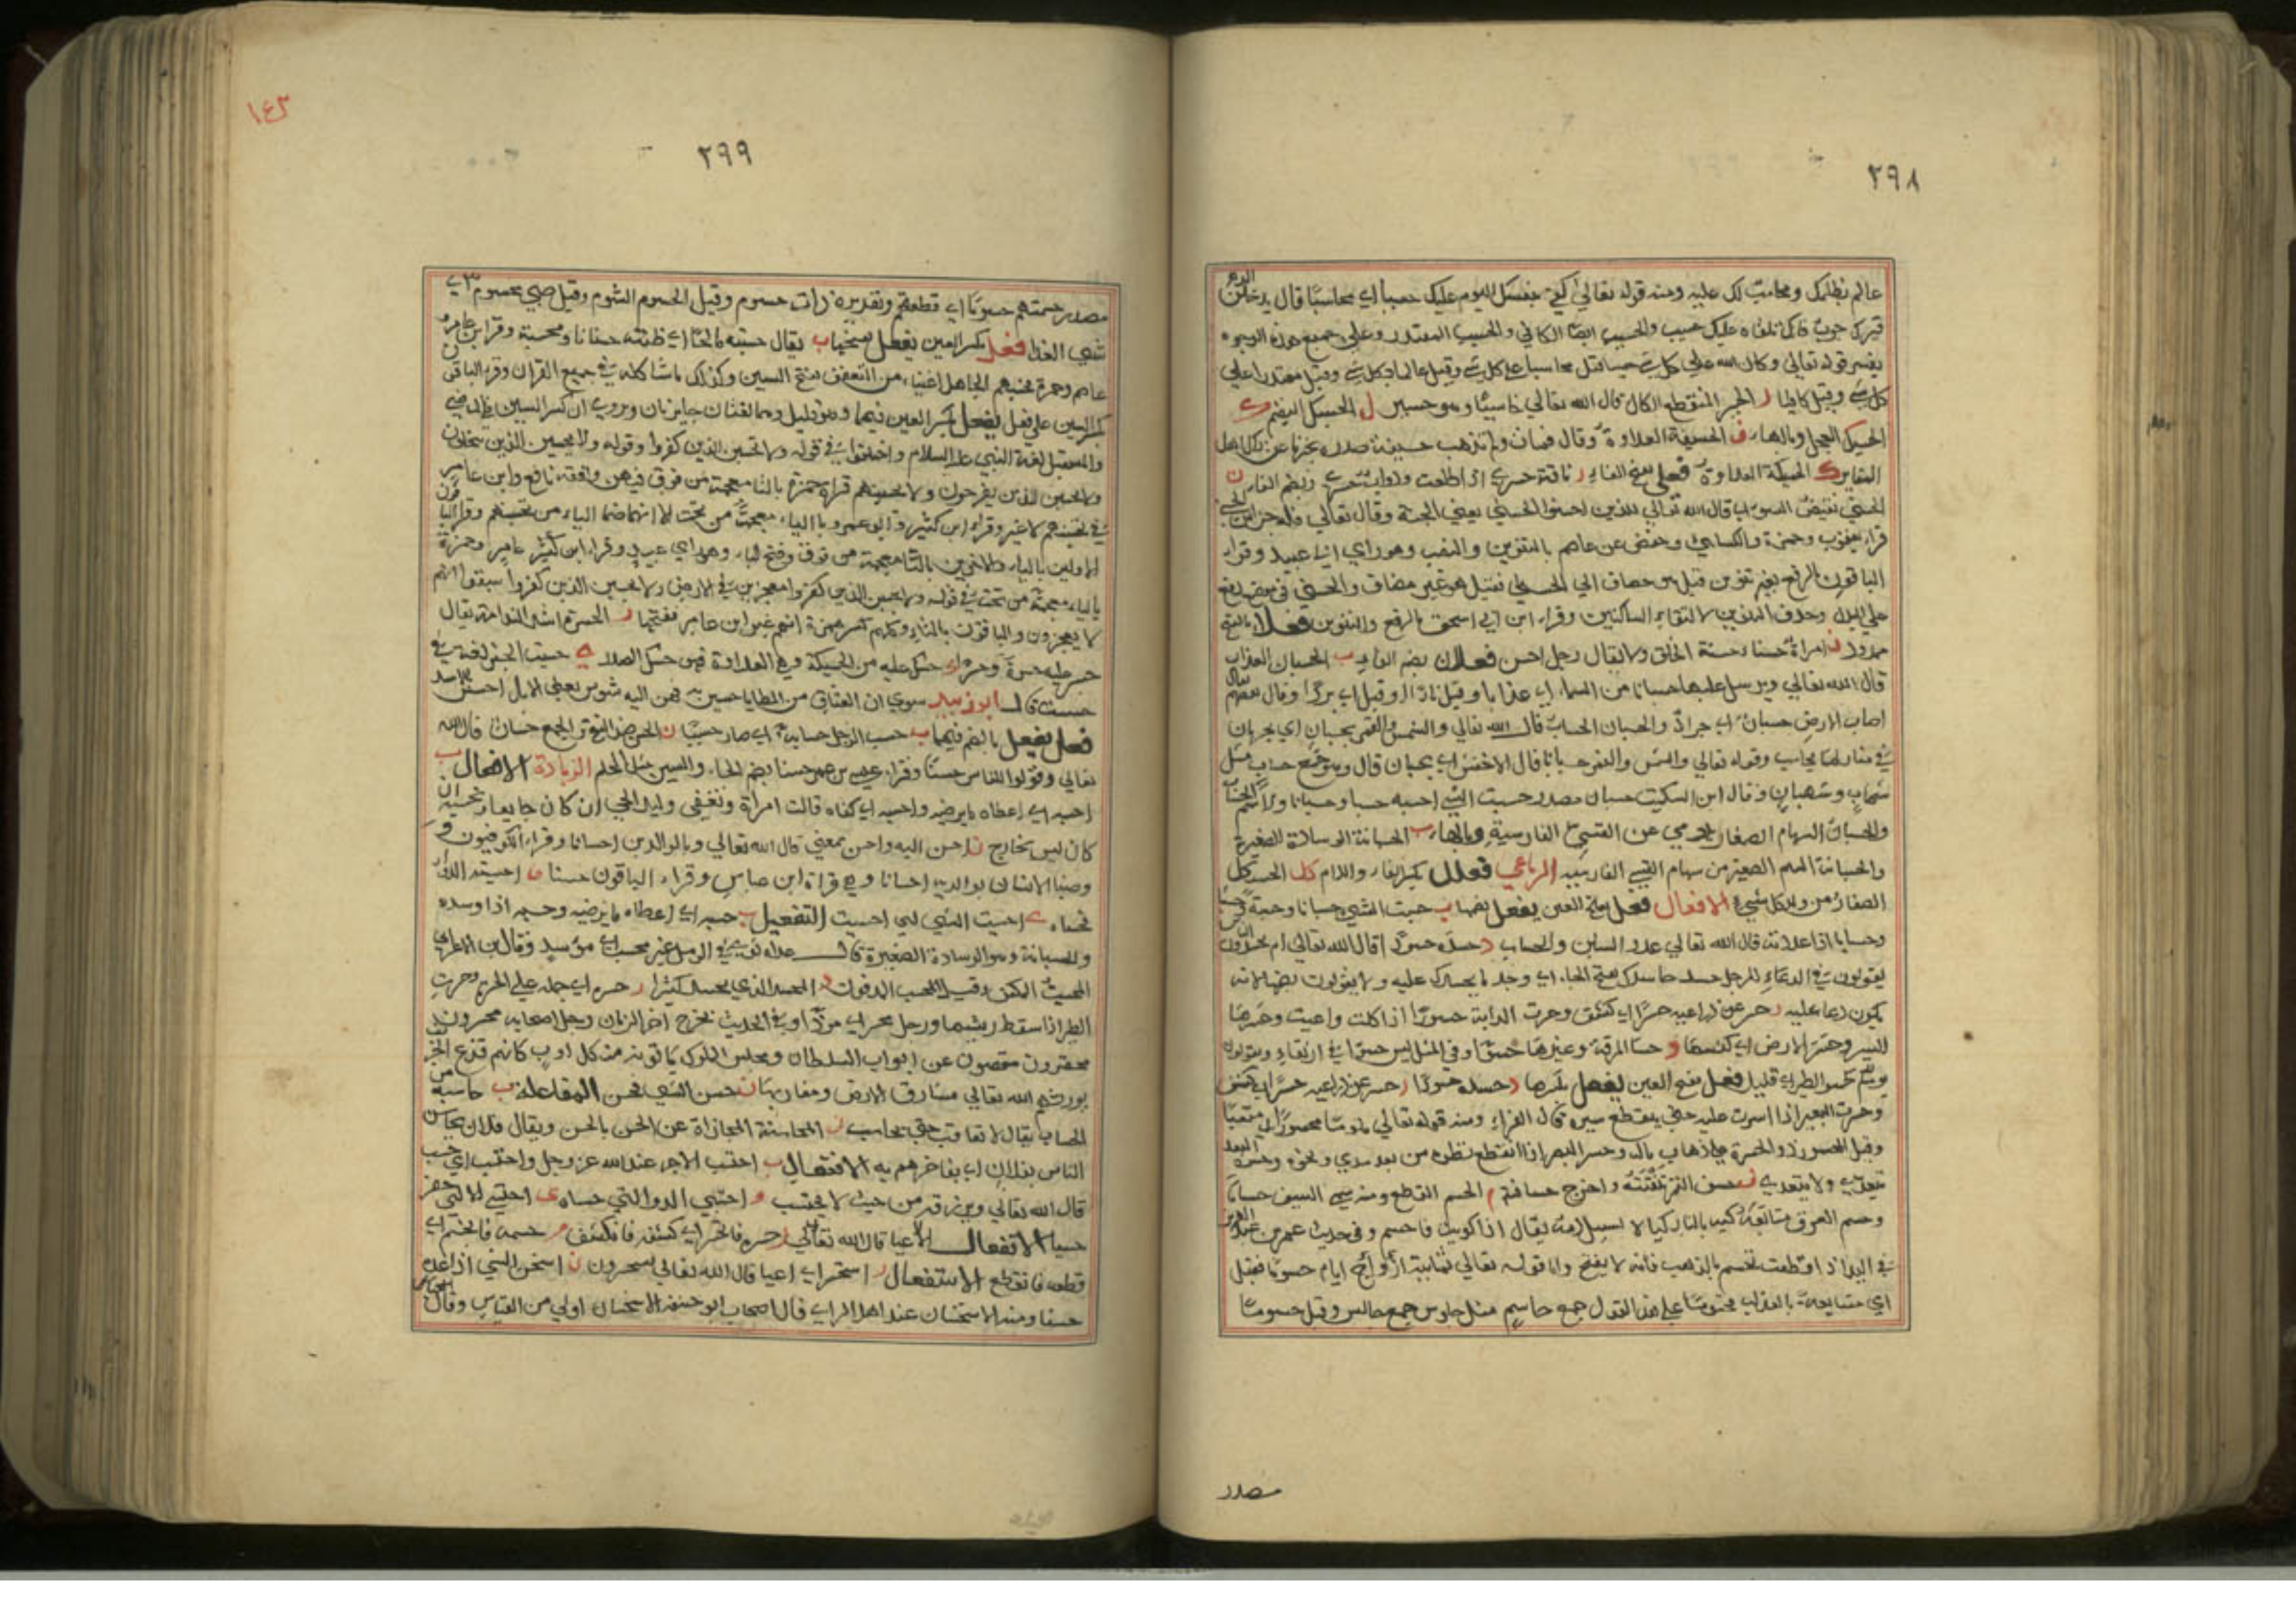 ٢٩٨
عالم بظلمك ومحاسب لك عليه ومنه قوله تعالى كفى بنفسك اليوم عليك حسيبا اي محاسبا قال
قبرك حوبٌ فانك تلقاه عليك حسيب والحسيب ايضا الكافي والحسيب المقتدر وعلى جميع هذه الوجوه
يفسر قوله تعالى وكان الله على كل شي حسيبا قيل محاسبا على كل شي وقيل عالما بكل شي وقيل مقتدرا على
كل شي وقيل كافيا ر الحجر المنقطع الكال قال الله تعالى خاسئا وهو حسير ل الحسيل
الحسيل العجل وبالهاء ف الحسيفة العداوة وقال فمات ولم تذهب حسيفة صدره يخبر عن ذاك اهل
المقابر ك الحسيكة العداوة فعلى بفتح الفاء ر ناقة حسرى اذا اطلعت ودواب حسرى وبضم الفاء ن
الحسنى نقيض السوءى قال الله تعالى للذين احسنوا الحسنى يعني الجنة وقال تعالى فله جزاء الحسنى
قراء يعقوب وحمزة والكسائي وحفص عن عاصم بالتنوين والنصب وهو راي ابي عبيد وقراء
الباقون بالرفع بغير تنوين قيل هو مضاف الى الحسنى فقيل هو غير مضاف والحسنى في موضع رفع
على البدل وحذف التنوين لالتقاء الساكنين وقراء ابن ابي اسحق بالرفع والتنوين فعلاء بالفتح
ممدود ن امراة حسناء حسنة الخلق ولا يقال رجل احسن فعلان بضم الفاء ب الحسبان العذاب
قال الله تعالى ويرسل عليها حسبانا من السماء اي عذابا وقيل نارا وقيل اي بردا وقال بعضهم يقال
اصاب الارض حسبان اي جراد والحسبان الحساب قال الله تعالى والشمس والقمر بحسبان اي يجريان
في منازلهما بحساب وقوله تعالى والشمس والقمر حسبانا قال الاخفش اي بحسبان قال وهو جمع حساب مثل
شهاب وشهبان وقال ابن السكيت حسبان مصدر حسبت الشي احسبه حسبا وحسبانا والاسم الحساب
والحسبان السهام الصغار يرمي عن القسي الفارسية وبالهاء ب الحسبانة الوسادة الصغيرة
والحسبانة السهم الصغير من سهام القسي الفارسية الرباعي فعلل بكسر الفاء واللام كل الحسكل
الصغار من ولد كل شي الافعال فعل بفتح العين يفعل بضمها ب حسبت الشي حسبانا وحسبة وحسبا
وحسابا اذا عددته قال الله تعالى عدد السنين والحساب د حسده حسدا قال الله تعالى ام يحسدون الناس
يقولون في الدعاء للرجل حسد حاسدك بفتح الحاء اي وجد ما يحسدك عليه ولا يقولون بضمها لانه
يكون دعا عليه ر حسر عن ذراعيه حسرا اي كشف وحسرت الدابة حسورا اذا كلت واعيت وحسرها
السير وحسر الارض اي كنسها و حسا المرقة وغيرها حسوا وفي المثل ليس حسوا في ارتغاء ويقولون
يوم كحسو الطير اي قليل فعل بفتح العين يفعل بكسرها د حسده حسودا ر حسر عن ذراعيه حسرا اي كشف
وحسرت البعير اذا اسرت عليه حتى ينقطع سيره قال الفراء ومنه قوله تعالى ملوما محسورا اي متعبا
وقيل المحسور ذو الحسرة على ذهاب ماله وحسر البصر اذا انقطع نظره من بعد مدى ونحوه وحسره البعد
يتعدى ولا يتعدى ف حسف التمر نقّته واخرج حسافته م الحسم القطع ومنه سمي السيف حساما
وحسم العرق متابعة كيه بالنار كيلا يسيل دمه يقال اذا كويت فاحسم وفي حديث عمر بن عبد العزيز
في اليد اذا قطعت تحسم بالذهب فانه لا يقيح واما قوله تعالى ثمانية ايام حسوما فقيل
اي متتابعة بالعذاب محسوما على هذا القول جمع حاسم مثل جلوس جمع جالس وقيل حسوما
مصدر
١٤٣
٢٩٩
مصدر حسمتهم حسوما اي قطعتهم وتقديره ذات حسوم وقيل الحسوم الشوم وقيل صبي محسوم اي
سيّئ الغذا فعل بكسر العين يفعل بفتحها ب يقال حسبته صالحا اي ظننته حسبانا ومحسبة وقرا ابن عامر و
عاصم وحمزة يحسبهم الجاهل اغنياء من التعفف بفتح السين وكذلك ما شاكله في جميع القران وقراء الباقون
بكسر السين على فعل يفعل بكسر العين فيهما وهو قليل وهما لغتان جايزتان وروي ان كسر السين في الماضي
والمستقبل لغة النبي عليه السلام واختلفوا في قوله ولا تحسبن الذين كفروا وقوله ولا يحسبن الذين يبخلون
ولا تحسبن الذين يفرحون ولا تحسبنهم قراة حمزة بالتا معجمة من فوق فيهن وافقه نافع وابن عامر
في تحسبنهم لا غير وقراء ابن كثير وابو عمرو بالياء معجمة من تحت الا انهما ضما الباء من تحسبنهم وقراء الباقون
الاولين بالياء والاخرين بالتا معجمة من فوق وفتح الباء وهو راي ابي عبيد وقراء ابن كثير عامر وحمزة
بالياء معجمة من تحت في قوله ولا يحسبن الذين كفروا معجزين في الارض ولا يحسبن الذين كفروا سبقوا انهم
لا يعجزون والباقون بالتاء وكلهم كسر همزة انهم غير ابن عامر ففتحها ر الحسرة اشد الندامة يقال
حسر عليه حسرة وحسرا ك حسك عليه من الحسيكة وهي العداوة فهو حسك الصدر ي حسيت الخبر لغة في
حسست قال ابو زبيد سوى ان العتاق من المطايا حسين به فهن اليه شوس يعني الابل احسسن بالاسد
فعل يفعل بالضم فيهما ب حسب الرجل حسابة اي صار حسيبا ن الحسن ضد القبح والجمع حسان قال الله
تعالى وقولوا للناس حسنا وقراء عيسى بن عمر حسنا بضم الحاء والسين مثل الحلم الزيادة الافعال ب
احسبه اي اعطاه ما يرضيه واحسبه اي كفاه قالت امراة ونقفي وليد الحي ان كان جايعا ونحسبه ان
كان ليس بجايع ن احسن اليه واحسن بمعنى قال الله تعالى وبالوالدين احسانا وقراء الكوفيون و
وصينا الانسان بوالديه احسانا وهي قراة ابن عباس وقراء الباقون حسنا و احسيته الدوا
فحساه ي احسيت الشي لي احسيت التفعيل ب حسبه اي اعطاه ما يرضيه وحسبه اذا وسده
والحسبانة وهو الوسادة الصغيرة قال غداة ثوى في الرمل غير محسب اي موسد وقال ابن الاعرابي
المحسب المكفن وقيل المحسب المدفون د المحسد الذي يحسد كثيرا ر حسره اي حمله على الحسرة وحسرت
الطير اذا سقط ريشها ورجل محسر اي موذّا وفي الحديث يخرج اخر الزمان رجل اصحابه محسرون
محقرون مقصون عن ابواب السلطان ومجالس الملوك ياتونه من كل اوب كانهم قزع الخريف
يورثهم الله تعالى مشارق الارض ومغاربها ن حسن الشي فحسن المفاعلة ب حاسبه من
الحساب يقال لا تعاقب حتى تحاسب ن المحاسنة المجازاة عن الحسن بالحسن ويقال فلان يحاسن
الناس بفلان اي يفاخرهم به الافتعال ب احتسب الاجر عند الله عز وجل واحتسب اي حسب
قال الله تعالى ويرزقه من حيث لا يحتسب و احتسى الدوا التي حساه ي احتسى اذا احتفر
حسيا الانفعال الاعيا قال الله تعالى ر حسره فانحسر اي كشفه فانكشف م حسمه فانحسم اي
قطعه فانقطع الاستفعال ر استحسر اي اعيا قال الله تعالى يستحسرون ن استحسن الشي اذا عده
حسنا ومنه الاستحسان عند اهل الراي قال اصحاب ابو حنيفة الاستحسان اولى من القياس وقال